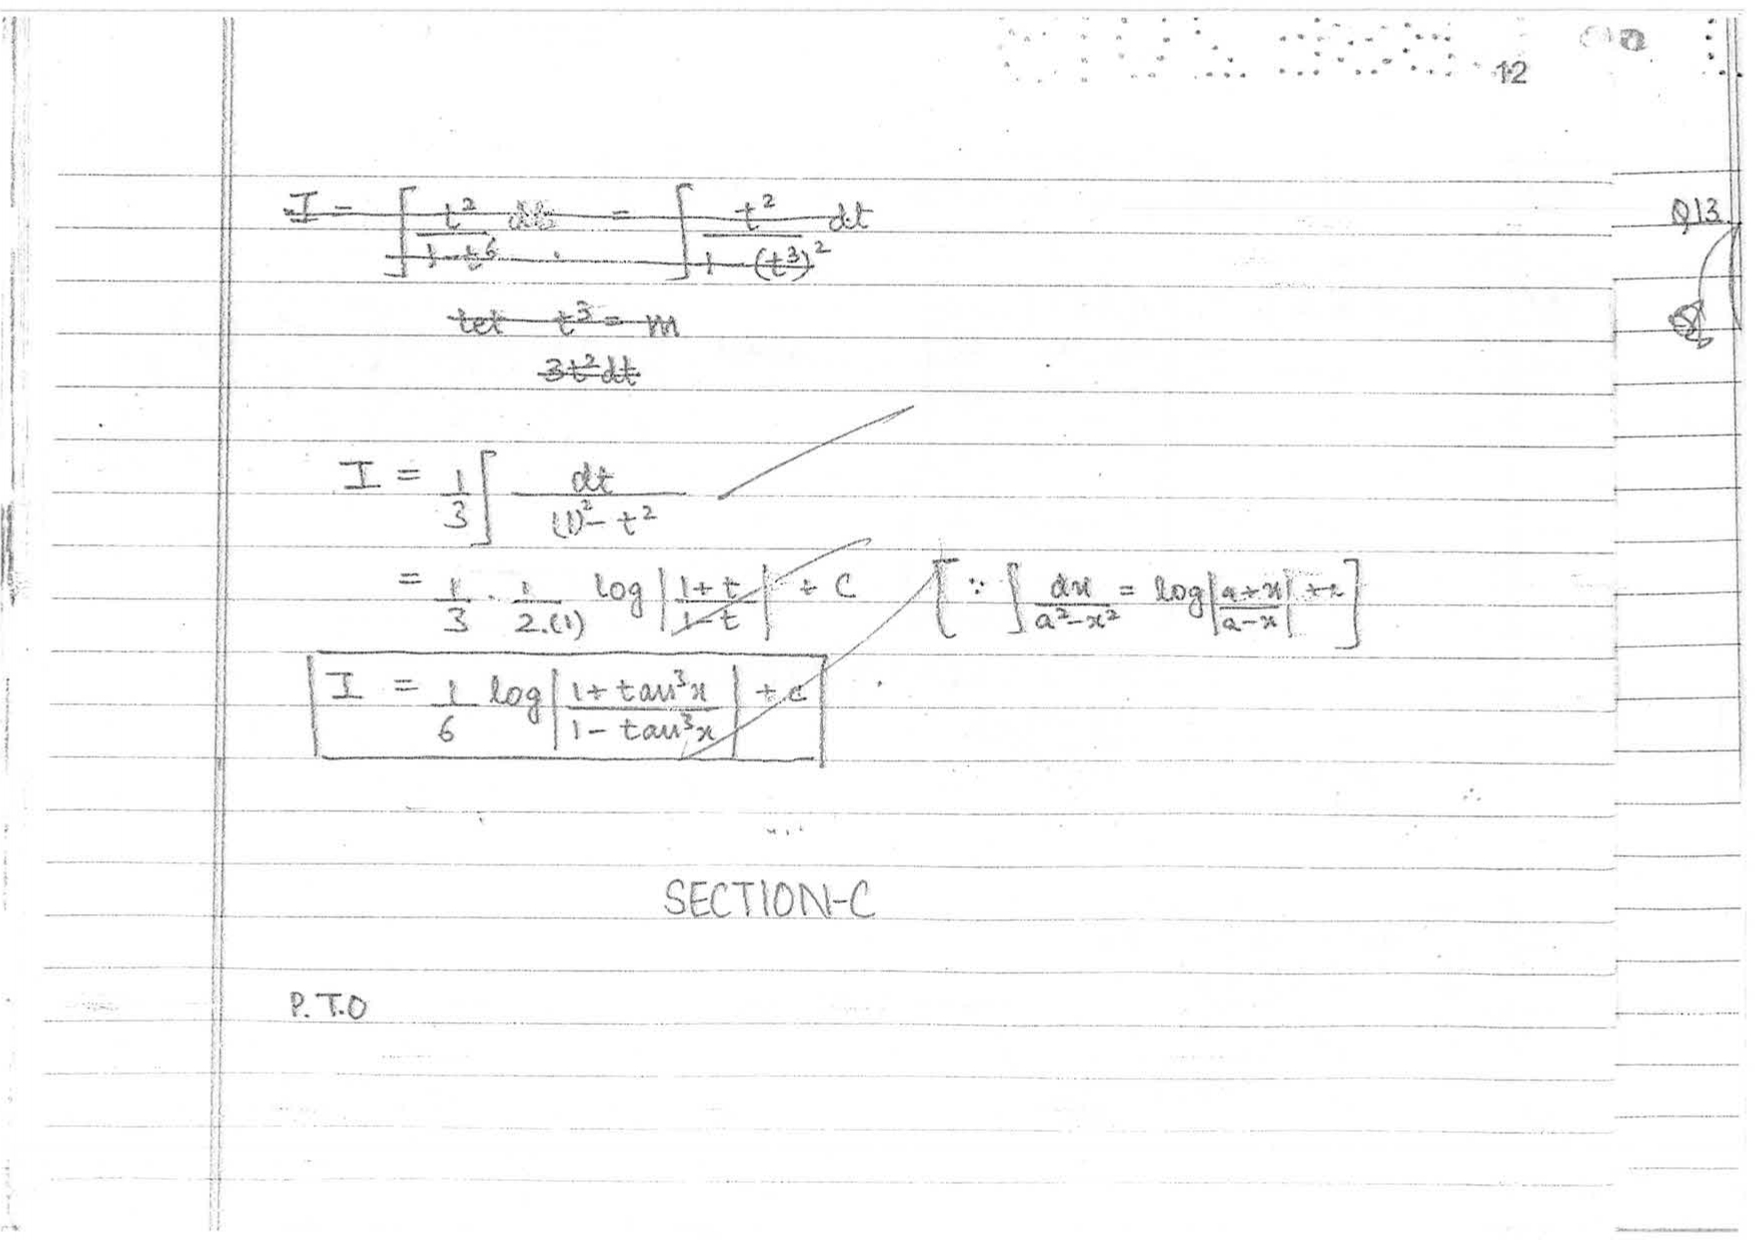 12
I = ∫ t²/(1-t⁶) dt = ∫ t²/(1-(t³)²) dt
let t³ = m
3t²dt
I = 1/3 ∫ dt/((1)² - t²)
= 1/3 · 1/2.(1) log |(1+t)/(1-t)| + C [∵ ∫ dx/(a²-x²) = log |(a+x)/(a-x)| + c]
I = 1/6 log |(1+tan³x)/(1-tan³x)| + c
SECTION-C
P.T.O
Q13